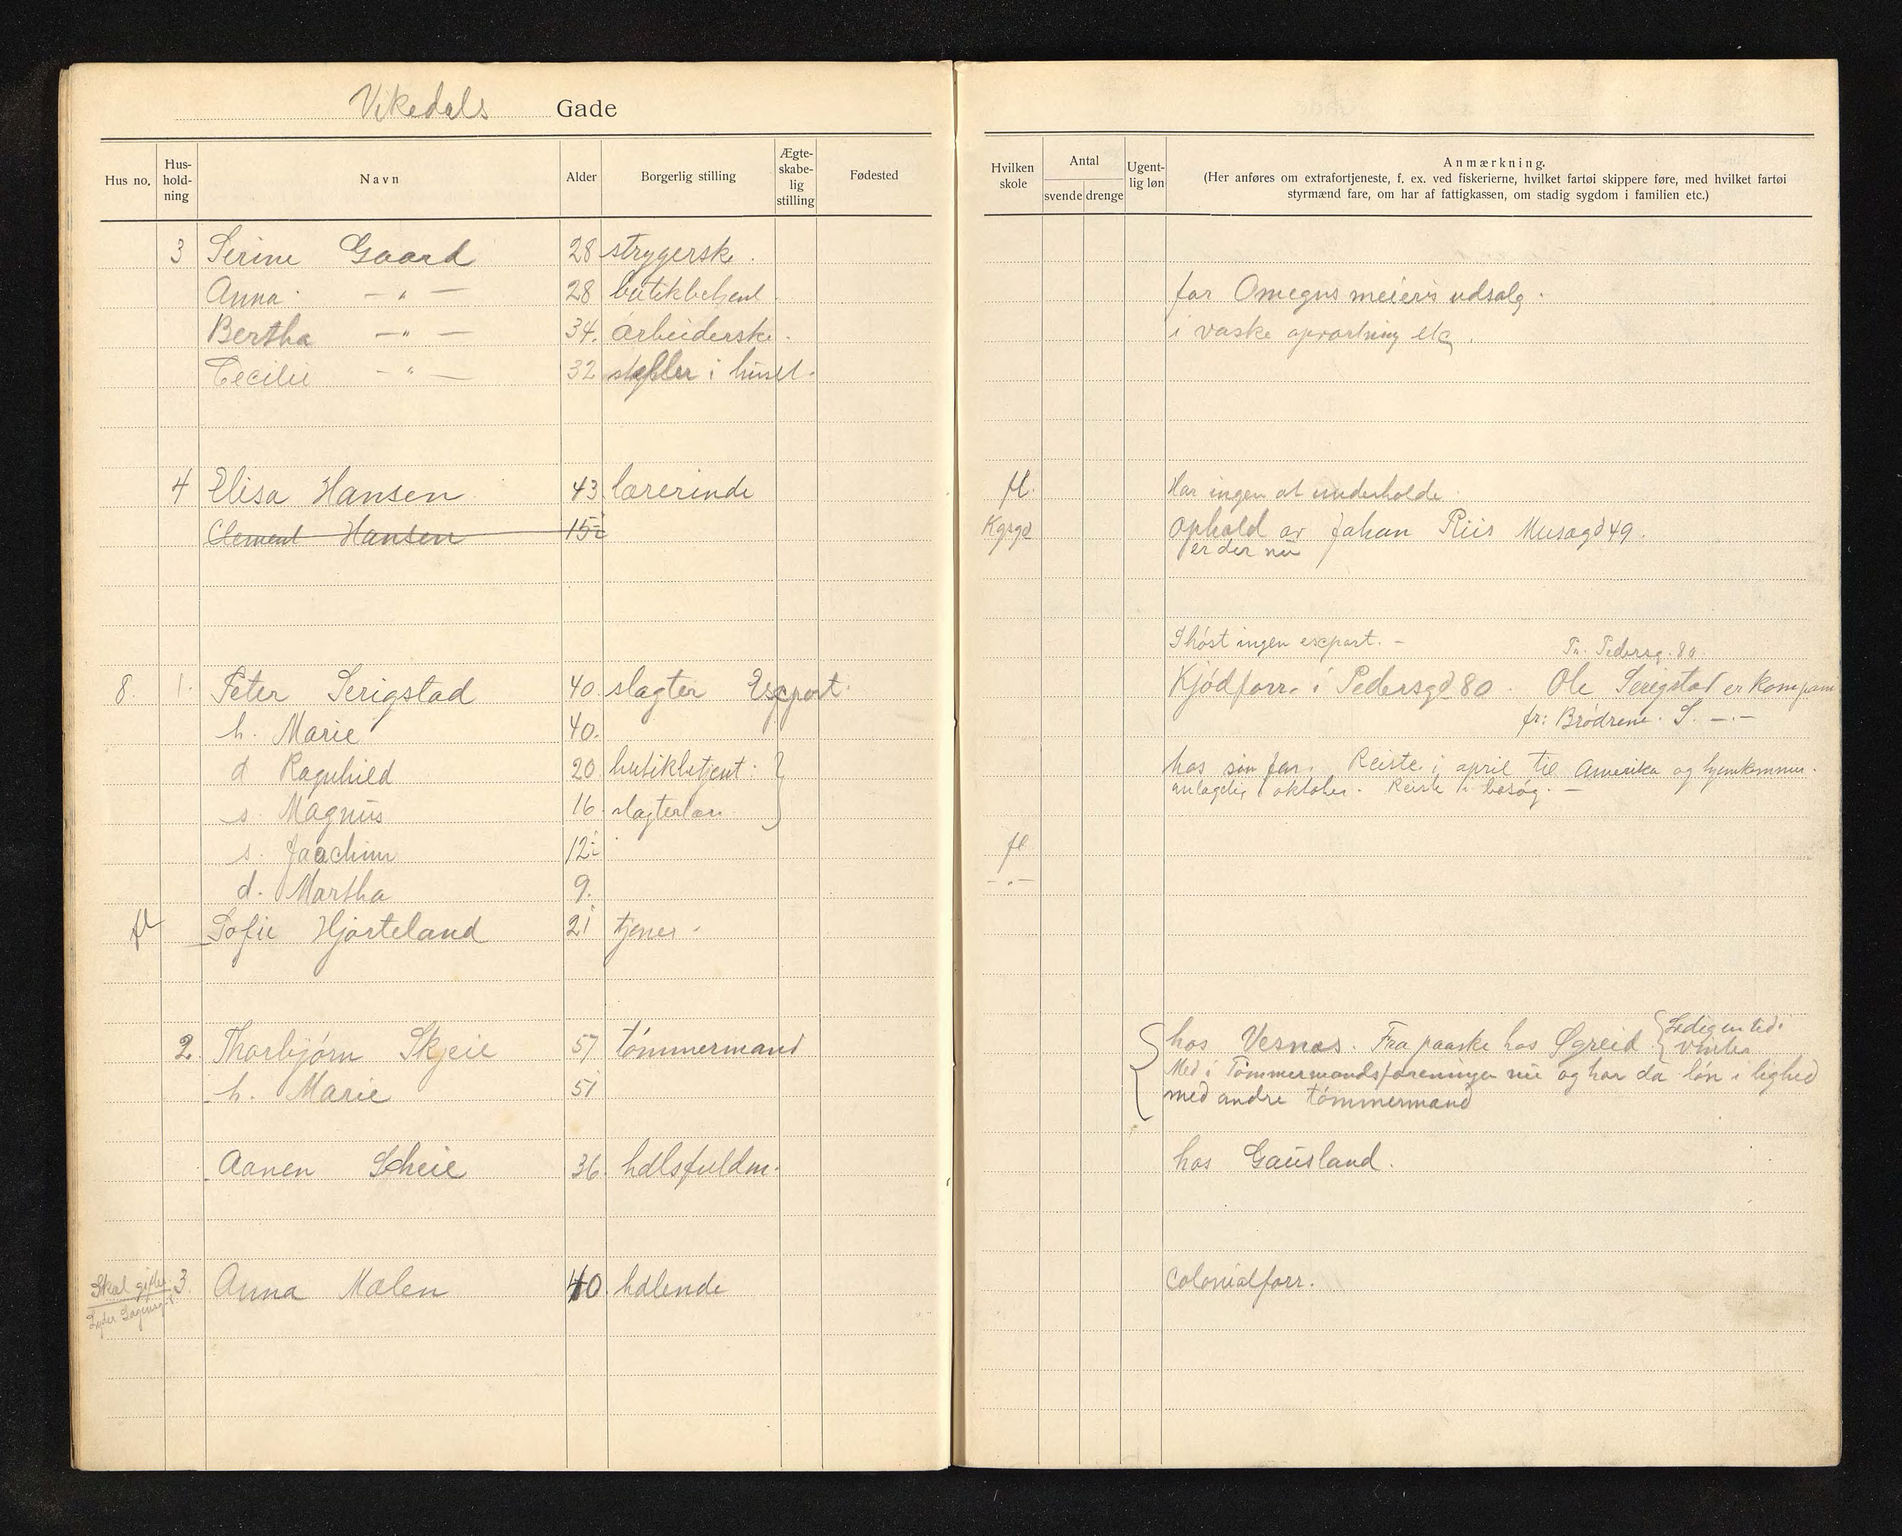 Vikedals Gade
Hus no. Hus-hold-ning Navn Alder Borgerlig stilling Ægte-skabe-lig stilling Fødested Hvilken skole Antal svende drenge Ugent-lig løn Anmærkning.
(Her anføres om extrafortjeneste, f. ex. ved fiskerierne, hvilket fartøi skippere føre, med hvilket fartøi
styrmænd fare, om har af fattigkassen, om stadig sygdom i familien etc.)
3 Serine Gaard 28 strygerske.
Anna - " - 28 butikbetjent. for Omegns meieris udsalg.
Bertha - " - 34. arbeiderske. i vaske opvartning etc.
Cecilie - " - 32 steller i huset.
4 Elisa Hansen 43 lærerinde fl. Har ingen at underholde.
Clement Hansen 15 Kgsgd Ophold av Johan Riis Musægd 49.
er der nu
I høst ingen export. - Fr. Pedersg. 80.
8. 1. Peter Serigstad 40. slagter Export. Kjødforr. i Pedersgd 80. Ole Serigstad er kompani
h. Marie 40. fr: Brødrene. S. -.-
d Ragnhild 20. butikbetjent. hos sin far. Reiste i april til Amerika og hjemkommer
s. Magnus 16 slagterlær. antagelig i oktober. Reiste i besøg. -
s. Joachim 12 fl
d. Martha 9. - " -
fl Sofie Hjorteland 21 tjener.
2. Thorbjørn Skjeie 57 tømmermand hos Vesnæs. Fra paaske hos Øgreid. Ledigen tid i vinter
h. Marie 51 Med i Tømmermandsforeningen nu og har da løn i lighed
med andre tømmermænd
Aanen Scheie 36. hdlsfuldm. hos Gausland.
Skal gifte 3. Anna Mælen 40. hdlende Colonialforr.